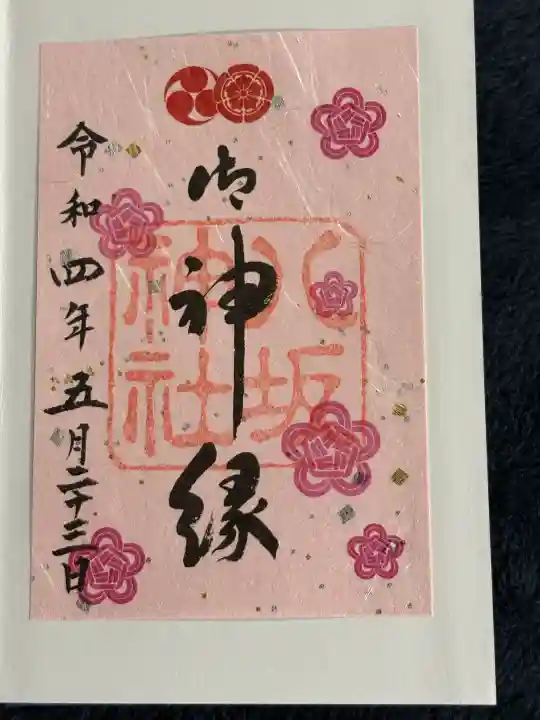 御神縁
八坂神社
令和四年五月二十三日